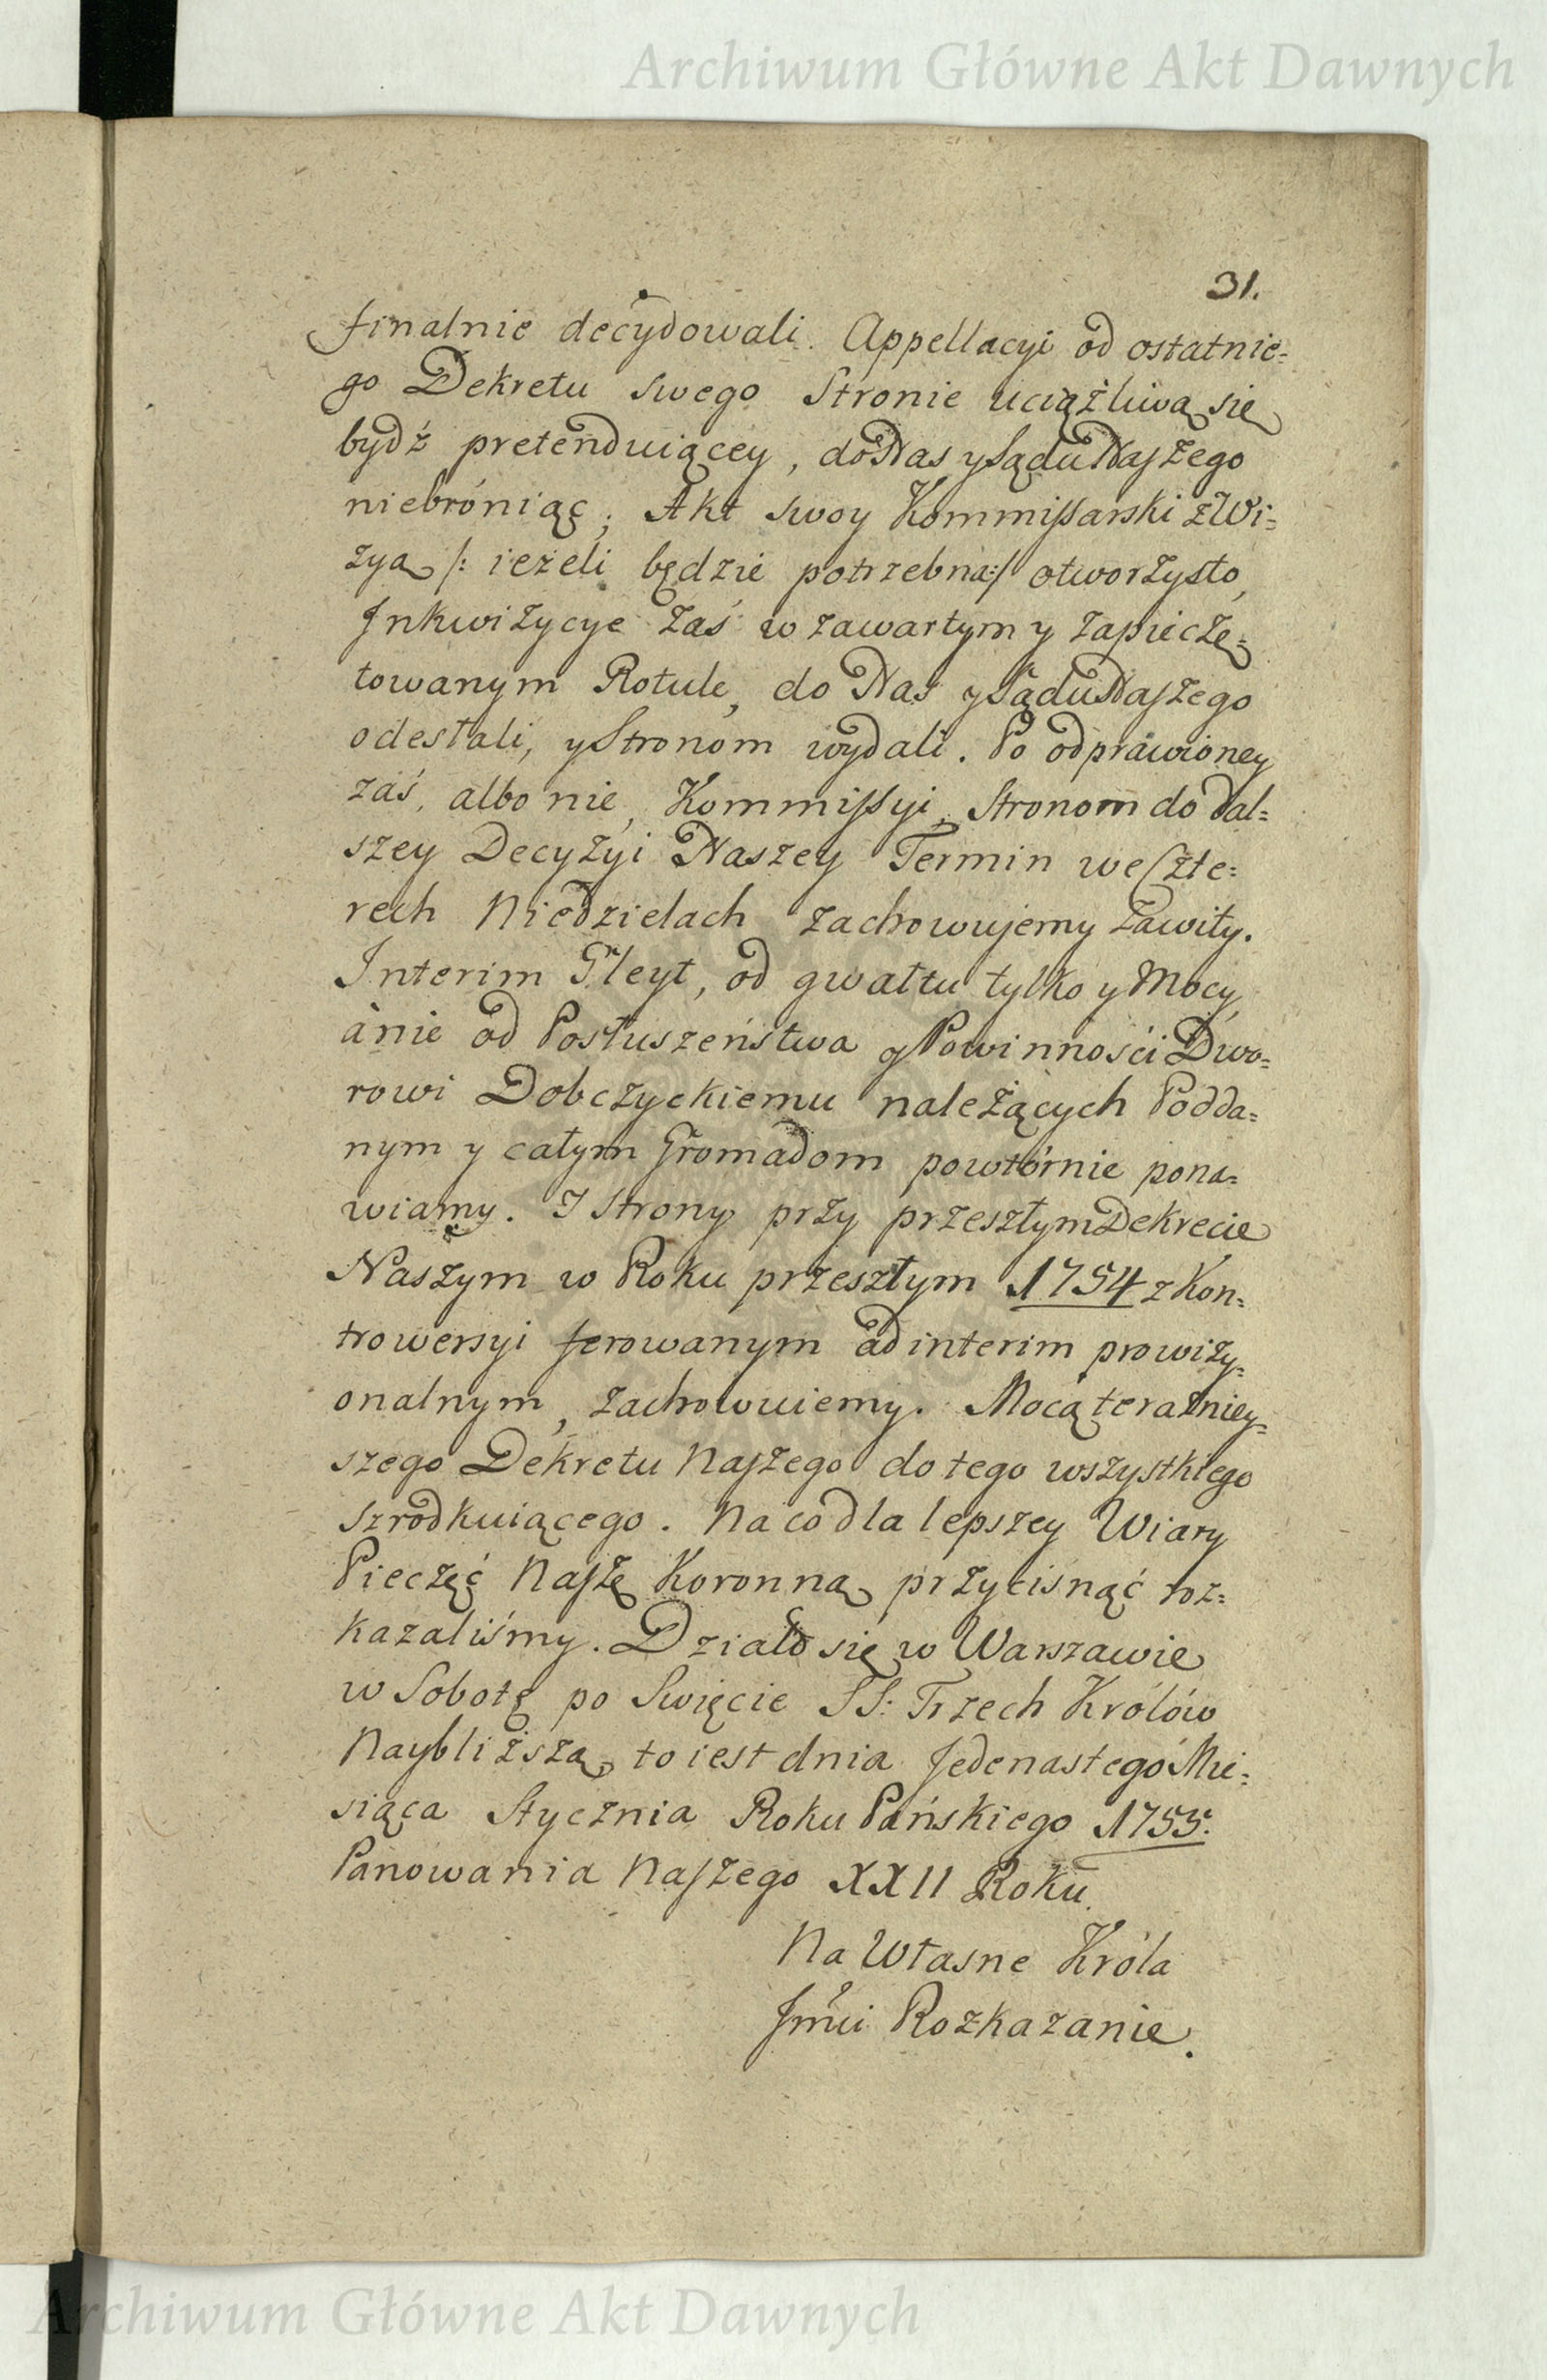 Archiwum Główne Akt Dawnych
31.
finalnie decydowali. Appellacyi od ostatnie=
go Dekretu swego Stronie uciążliwą się
bydź pretenduiącey, do Nas y Sądu Naszego
niebróniąc; Akt swoy Kommissarski z Wi=
zyą /: ieżeli będzie potrzebna :/ otworzysto,
Inkwizycye zaś w zawartym y zapieczę=
towanym Rotule, do Nas y Sądu Naszego
odesłali, y Stronom wydali. Po odprawioney
zaś, albo nie, Kommissyi, Stronom do dal=
szey Decyzyi Naszey Termin we Czte=
rech Niedzielach zachowujemy zawity.
Interim Gleyt, od gwałtu tylko y Mocy,
a nie od Posłuszeństwa y Powinności Dwo=
rowi Dobczyckiemu należących Podda=
nym y całym Gromadom powtórnie pona=
wiamy. I Strony przy przeszłym Dekrecie
Naszym w Roku przeszłym 1754 z Kon=
trowersyi ferowanym ad interim prowizy=
onalnym, zachowuiemy. Mocą teraźniey=
szego Dekretu Naszego do tego wszystkiego
szrodkuiącego. Na co dla lepszey Wiary
Pieczęć Naszę Koronną przycisnąć roz=
kazaliśmy. Działo się w Warszawie
w Sobotę po Swięcie SS: Trzech Królów
Naybliższą, to iest dnia Jedenastego Mie=
siąca Stycznia Roku Pańskiego 1755.
Panowania Naszego XXII Roku.
Na Własne Króla
Jmci Rozkazanie.
Archiwum Główne Akt Dawnych